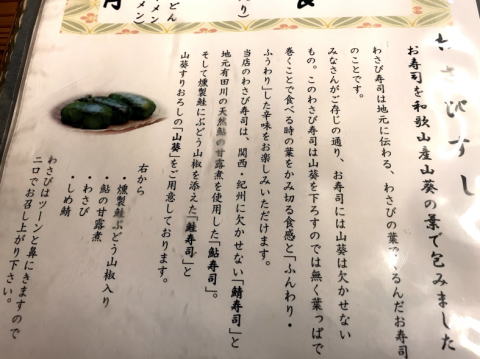 わさびすし
お寿司を和歌山産山葵の葉で包みました
わさび寿司は地元に伝わる、わさびの葉で、くるんだお寿司
のことです。
みなさんがご存じの通り、お寿司には山葵は欠かせない
もの。このわさび寿司は山葵を下ろすのでは無く葉っぱで
巻くことで食べる時の葉をかみ切る食感と「ふんわり・
ふうわり」した辛味をお楽しみいただけます。
当店のわさび寿司は、関西・紀州に欠かせない「鯖寿司」と
地元有田川の天然鮎の甘露煮を使用した「鮎寿司」。
そして燻製鮭にぶどう山椒を添えた「鮭寿司」と
山葵すりおろしの「山葵」をご用意しております。
右から
・燻製鮭ぶどう山椒入り
・鮎の甘露煮
・わさび
・しめ鯖
わさびはツーンと鼻にきますので
二口でお召し上がり下さい。